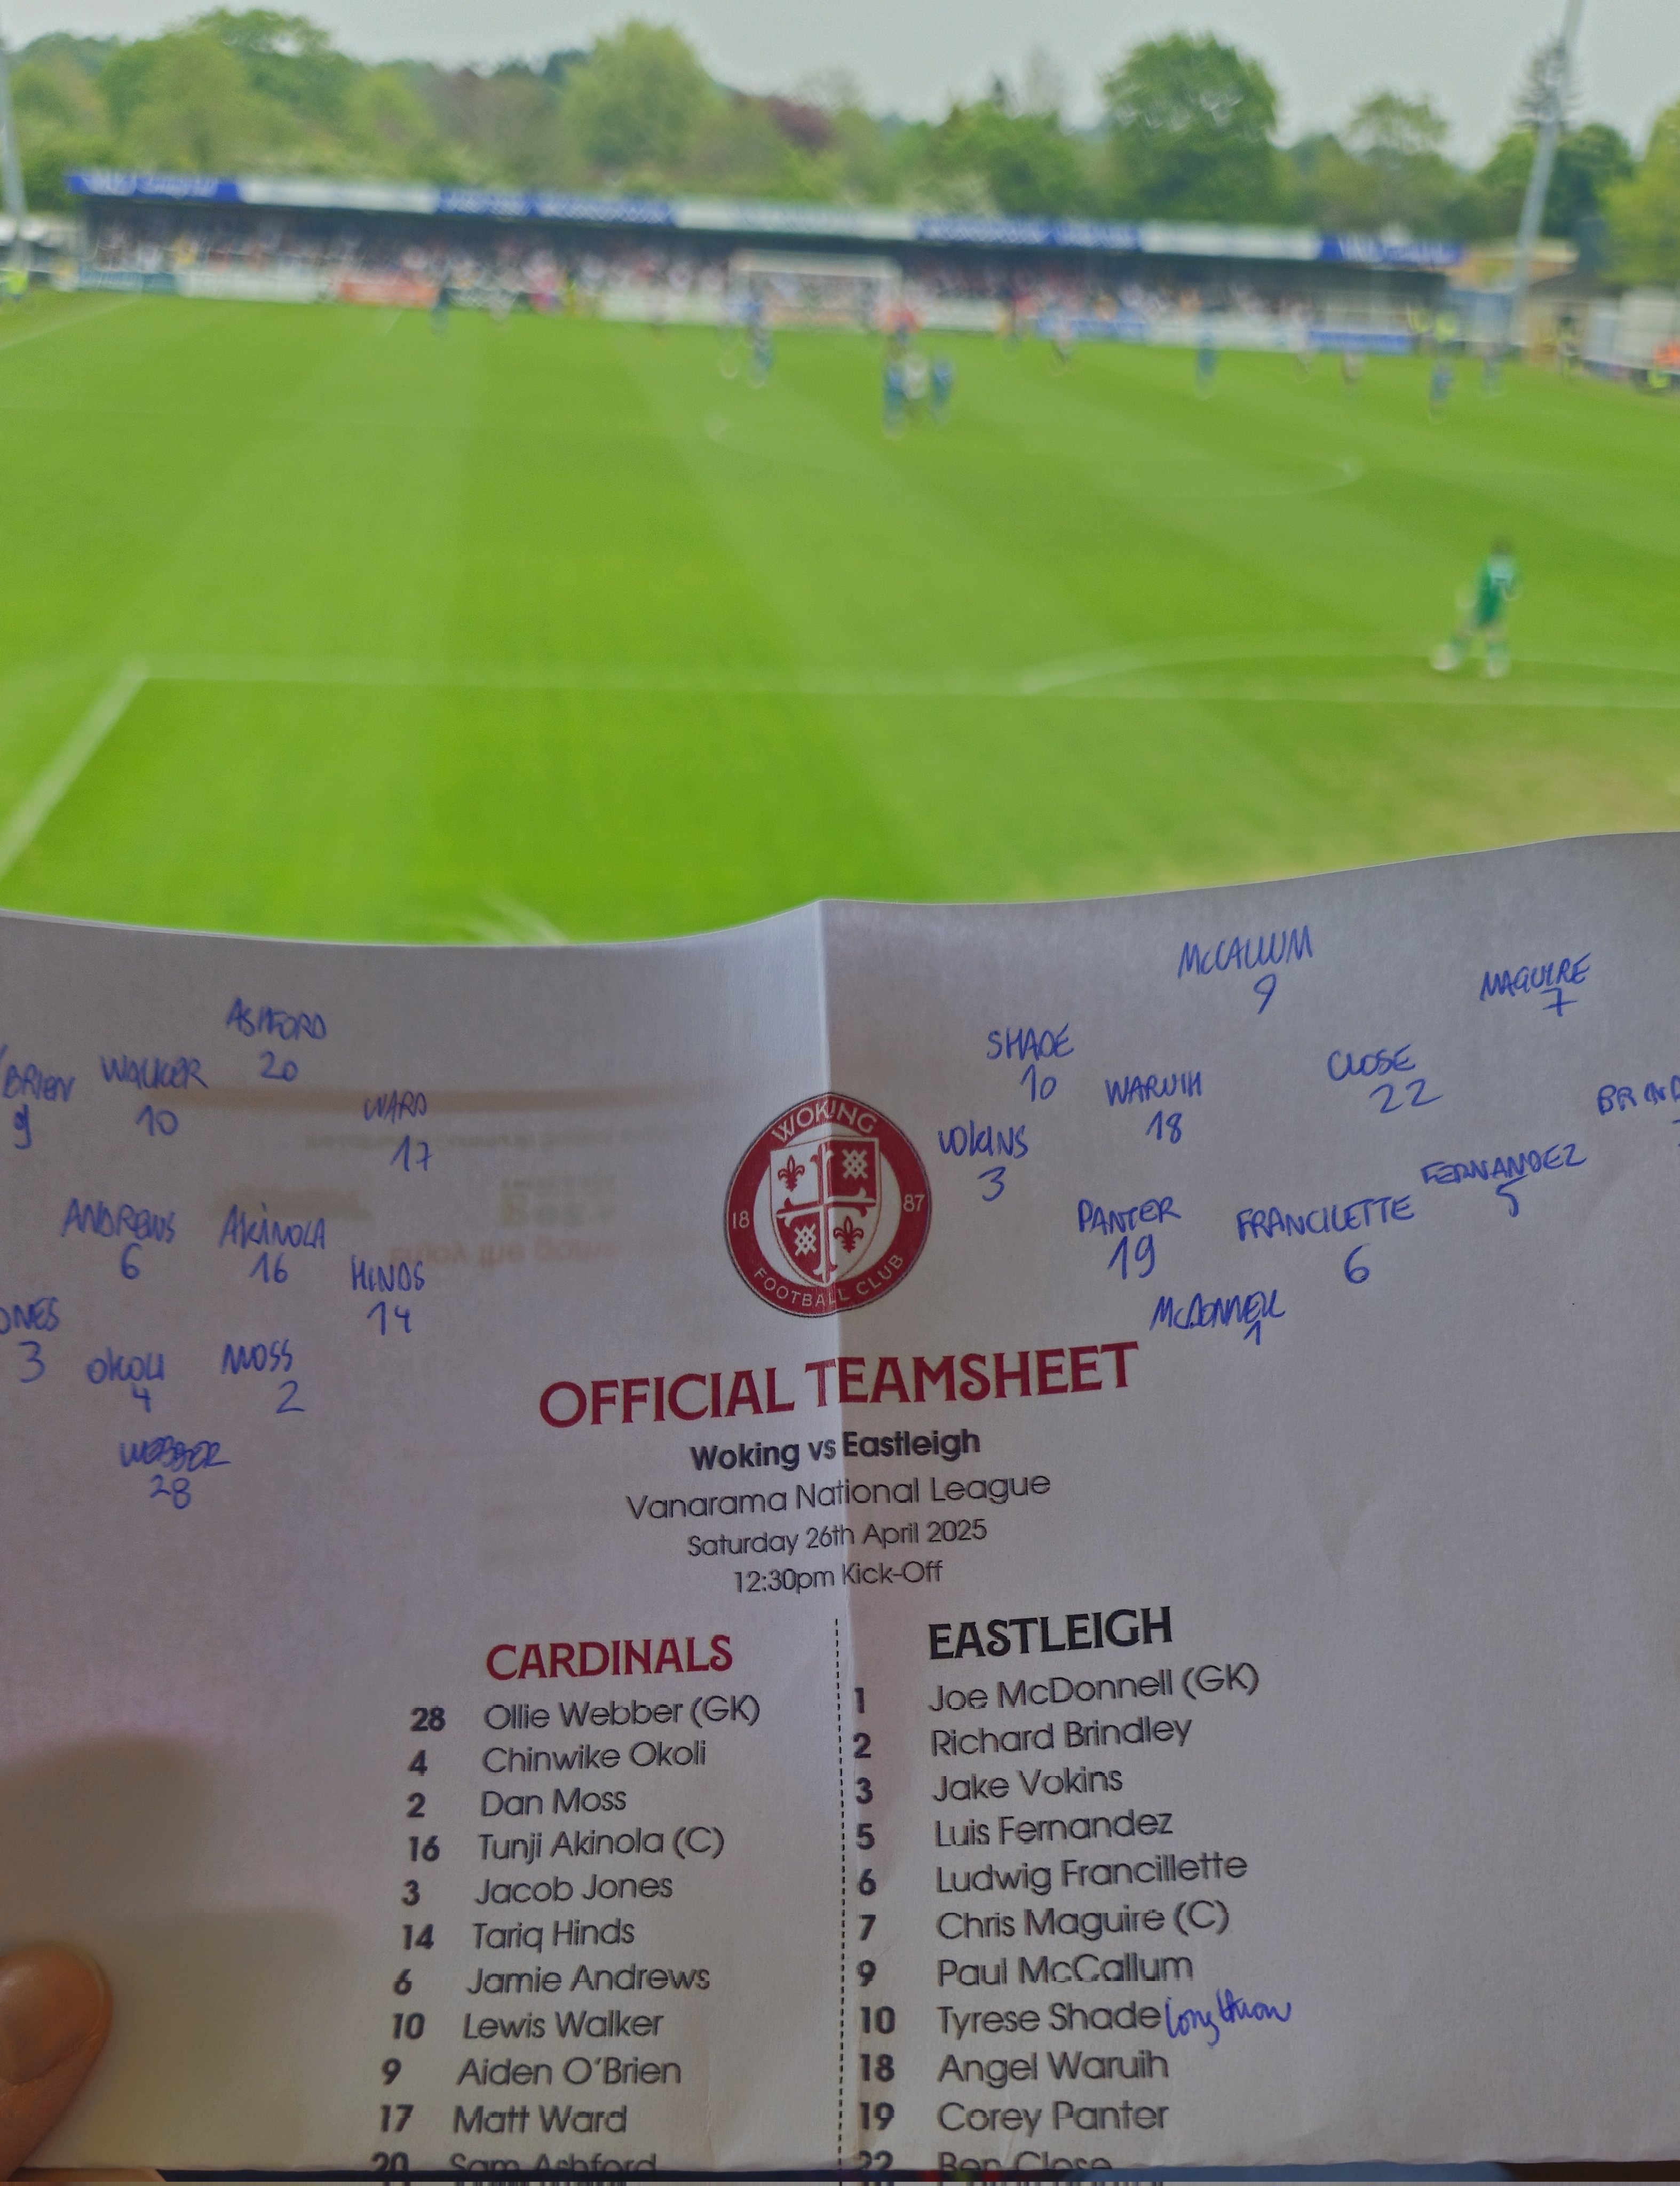 McCALLUM
9
MAGUIRE
7
ASHFORD
20
SHADE
10
CLOSE
22
BRIEN
9
WALKER
10
WARUIH
18
WARD
17
VOKINS
3
FERNANDEZ
5
ANDREWS
6
AKINOLA
16
HINDS
14
PANTER
19
FRANCILETTE
6
McDONNELL
1
ONES
3
OKOLI
4
MOSS
2
WEBBER
28
WOKING
18 87
FOOTBALL CLUB
OFFICIAL TEAMSHEET
Woking vs Eastleigh
Vanarama National League
Saturday 26th April 2025
12:30pm Kick-Off
CARDINALS
28 Ollie Webber (GK)
4 Chinwike Okoli
2 Dan Moss
16 Tunji Akinola (C)
3 Jacob Jones
14 Tariq Hinds
6 Jamie Andrews
10 Lewis Walker
9 Aiden O'Brien
17 Matt Ward
20 Sam Ashford
EASTLEIGH
1 Joe McDonnell (GK)
2 Richard Brindley
3 Jake Vokins
5 Luis Fernandez
6 Ludwig Francillette
7 Chris Maguire (C)
9 Paul McCallum
10 Tyrese Shade long throw
18 Angel Waruih
19 Corey Panter
22 Ben Close